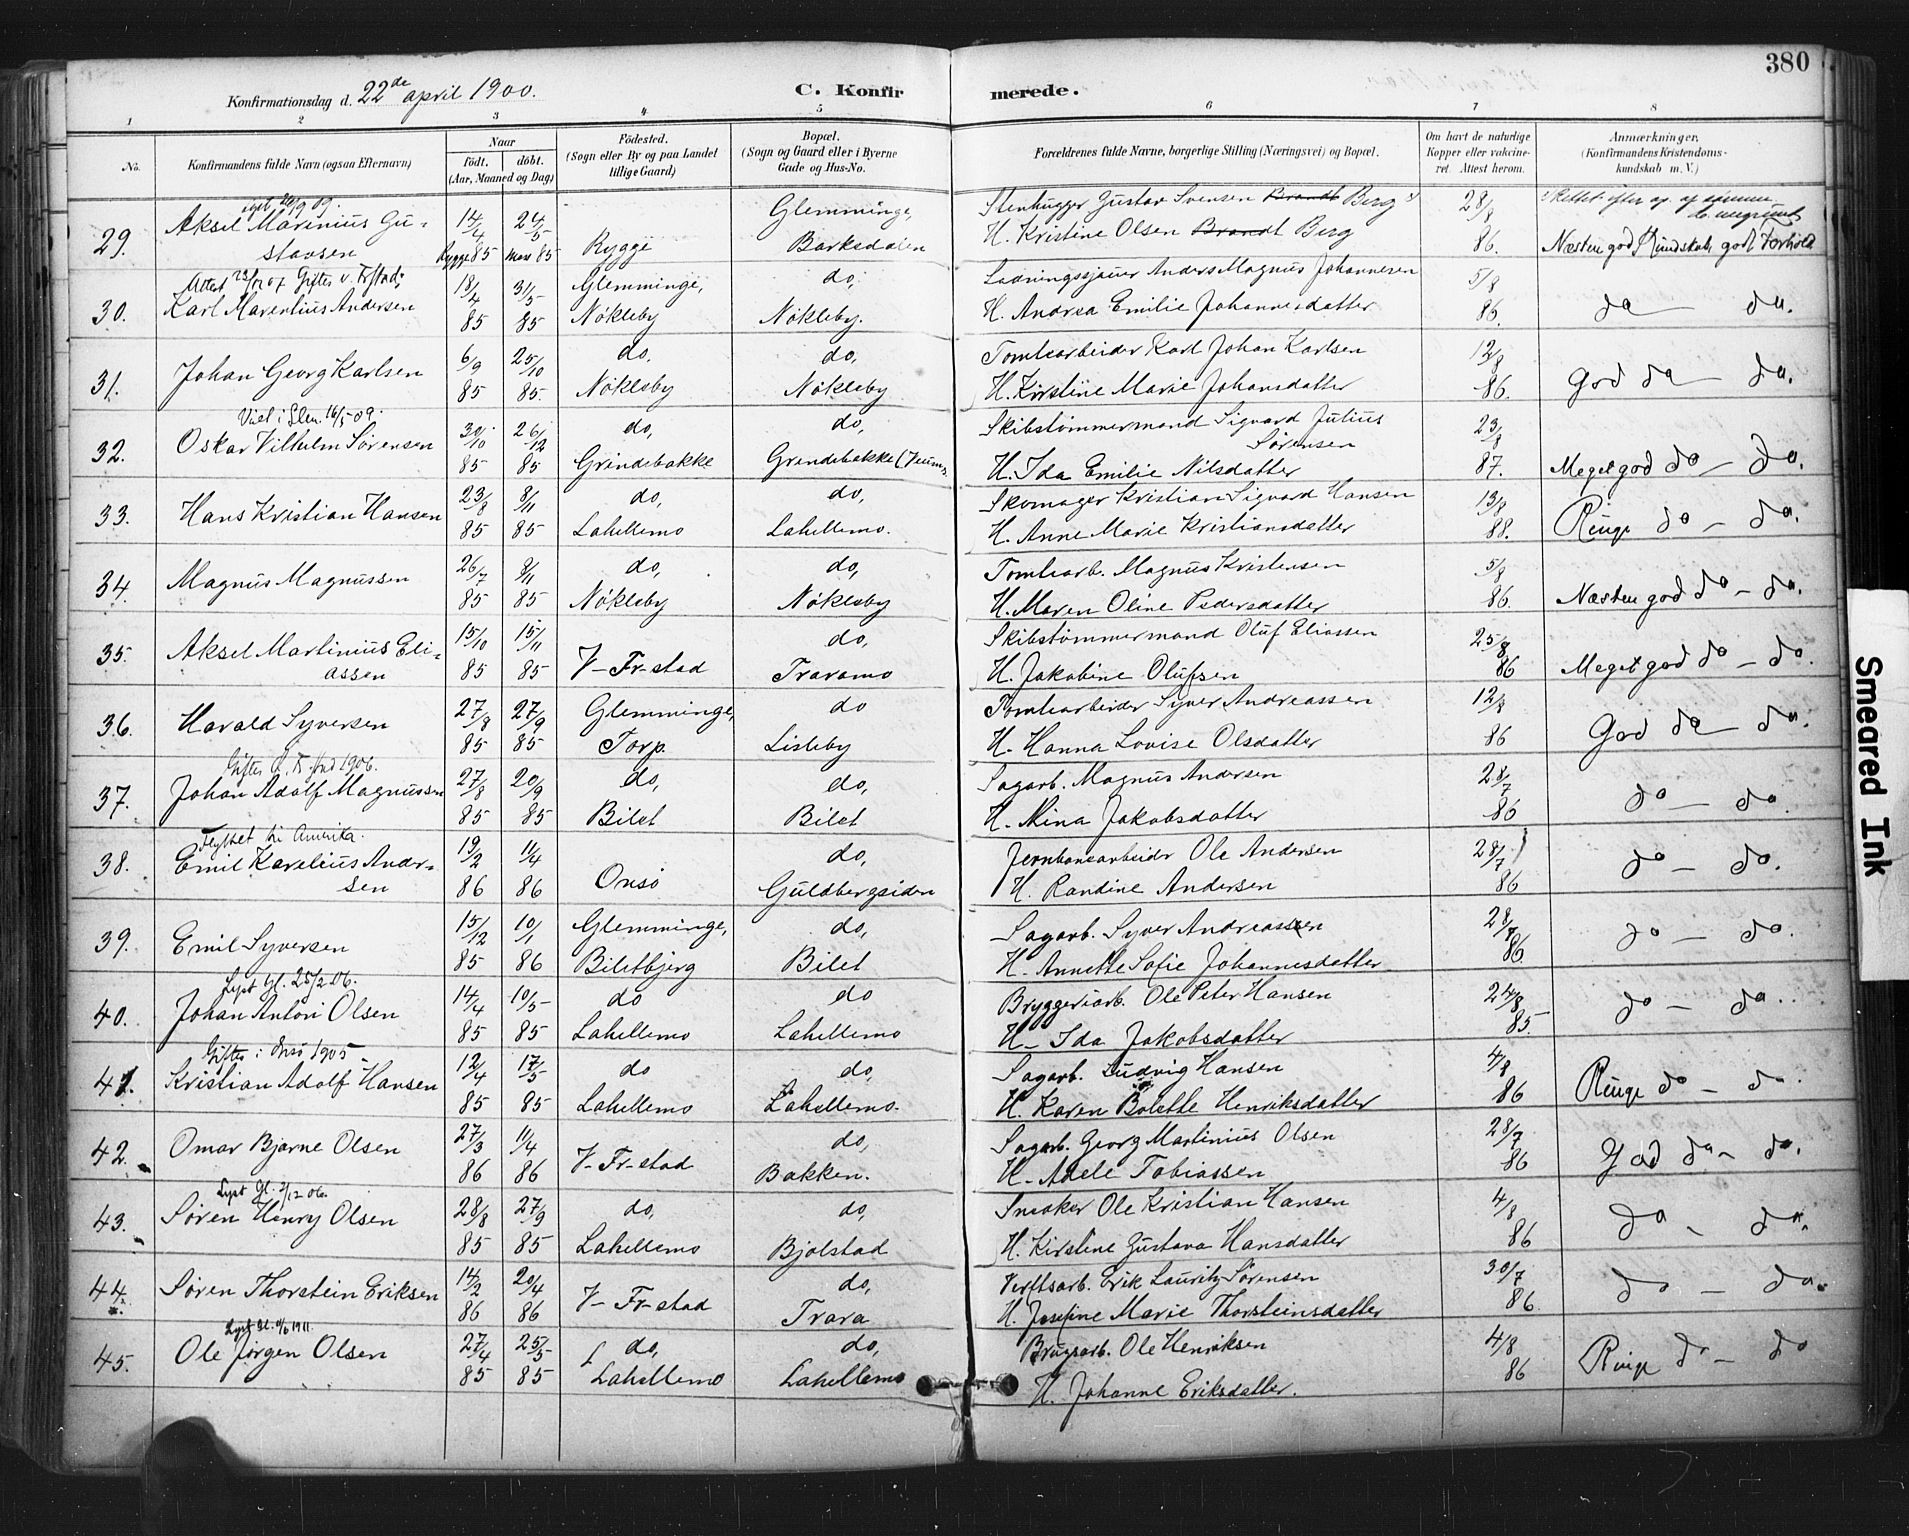 380
Konfirmationsdag d. 22de april 1900.
C. Konfirmerede.
1 2 3 4 5 6 7 8
No. Konfirmandens fulde Navn (ogsaa Efternavn) Naar födt. döbt. (Aar, Maaned og Dag) Födested. (Sogn eller By og paa Landet tillige Gaard) Bopæl. (Sogn og Gaard eller i Byerne Gade og Hus-No. Forældrenes fulde Navne, borgerlige Stilling (Næringsvei) og Bopæl. Om havt de naturlige Kopper eller vakcineret. Attest herom. Anmærkninger. (Konfirmandens Kristendomskundskab m. V.)
29. Aksel Marinius Gu- 14/4 24/5 Glemminge, Stenhugger Gustav Svensen Brandt Berg 28/8
stavsen Rygge 85 Moss 85 Rygge Barksdalen H. Kristine Olsen Brandt Berg 86. Næsten god Kundskab, godt Forhold
Attest 23/12 07 Giftes v. Frstad.
30. Karl Marentius Andersen 18/4 31/5 Glemminge, do, Ladningssjauer Anders Magnus Johannesen 5/8
85 85 Nökleby Nökleby. H. Andrea Emilie Johannesdatter 86. do — do.
31. Johan Georg Karlsen 6/9 25/10 do. do, Tomtearbeider Karl Johan Karlsen 12/8
85 85. Nökleby Nökleby H. Kirstine Marie Johansdatter 86. God do — do.
Viet i Glem. 16/5 09.
32. Oskar Vilhelm Sörensen 30/10 26/12 do, do, Skibstömmermand Sigvard Julius Sörensen 23/8
85 85 Grindebakke Grindebakke (Veum) H. Ida Emilie Nilsdatter 87. Meget god do — do.
33. Hans Kristian Hansen 23/8 8/11 do, do, Skomager Kristian Sigvard Hansen 13/8
85 85 Lahellemo Lahellemo. H. Anne Marie Kristiansdatter 88. Ringe do — do.
34. Magnus Magnussen 26/7 8/11 do, do, Tomtearb. Magnus Kristensen 5/8
85 85 Nökleby Nökleby H. Maren Oline Pedersdatter 86. Næsten god do — do.
35. Aksel Martinius Eli- 15/10 15/11 do, Skibstömmermand Oluf Eliassen 25/8
assen 85 85 V-Fr-stad Traramo H. Jakobine Olufsen 86 Meget god do — do.
36. Harald Syversen 27/8 27/9 Glemminge, do Tomtearbeider Syver Andreassen 12/8
85 85 Torp. Lisleby H. Hanna Lovise Olsdatter 86 God do — do.
1906.
37. Johan Adolf Magnussen 27/8 20/9 do, do, Sagarb. Magnus Andersen 28/7
85 85 Bilet Bilet H. Mina Jakobsdatter 86 do — do.
Flyttet til Amerika.
38. Emil Karelius Ander- 19/2 11/4 do, Jernbanearbeider Ole Andersen 28/7
sen 86 86 Onsö Guldbergsiden H. Randine Andersen 86 do — do.
39. Emil Syversen 15/12 10/1 Glemminge, do, Sagarb. Syver Andreassen 28/7
85 86 Biletbjerg Bilet H. Annette Sofie Johannesdatter 86. do — do.
Lyst Gl. 25/2 06.
40. Johan Anton Olsen 14/4 10/5 do do Bryggeriarb. Ole Peter Hansen 24/8
85 85 Lahellemo Lahellemo H. Ida Jakobsdatter 85 do — do.
Giftes i Onsö 1905
41. Kristian Adolf Hansen 12/4 17/5 do do, Sagarb. Ludvig Hansen 4/8
85 85 Lahellemo Lahellemo. H. Karen Bolette Henriksdatter 86 Ringe do — do
42. Omar Bjarne Olsen 27/3 11/4 do, Sagarb. Georg Martinius Olsen 28/7
86 86 V-Fr-stad Bakken. H. Adele Tobiassen 86 God do — do.
Lyst Gl. 2/12 06.
43. Sören Henry Olsen 28/8 27/9 do, do, Snedker Ole Kristian Hansen 4/8
85 85 Lahellemo Bjölstad H. Kirstine Gustava Hansdatter 86 do — do.
44. Sören Thorstein Eriksen 14/2 20/4 do, Verftsarb. Erik Lauritz Sörensen 30/7
86 86 V-Fr-stad Trara H. Josefine Marie Thorsteinsdatter 86. do — do.
Lyst Gl. 1911.
45. Ole Jörgen Olsen 27/4 25/5 do, do, Brugsarb. Ole Henriksen 4/8
85 85 Lahellemo Lahellemo H. Johanne Eriksdatter. 86 Ringe do — do
Smeared Ink